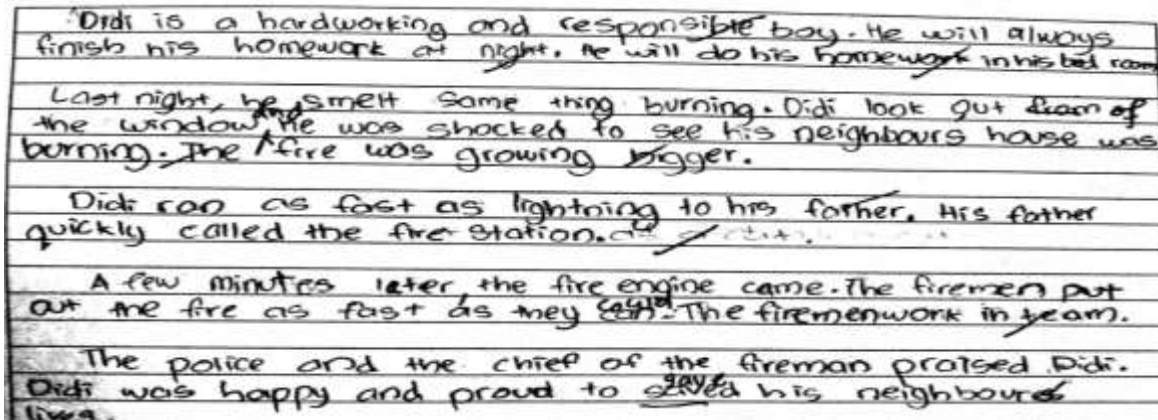 Didi is a hardworking and responsible boy. He will always
finish his homework at night. He will do his homework in his bed room
Last night, he smelt some thing burning. Didi look out of
the window and He was shocked to see his neighbours house was
burning. The fire was growing bigger.
Didi ran as fast as lightning to his father. His father
quickly called the fire station.
A few minutes later, the fire engine came. The firemen put
out the fire as fast as they could. The firemen work in team.
The police and the chief of the fireman praised Didi.
Didi was happy and proud to save his neighbours
lives.